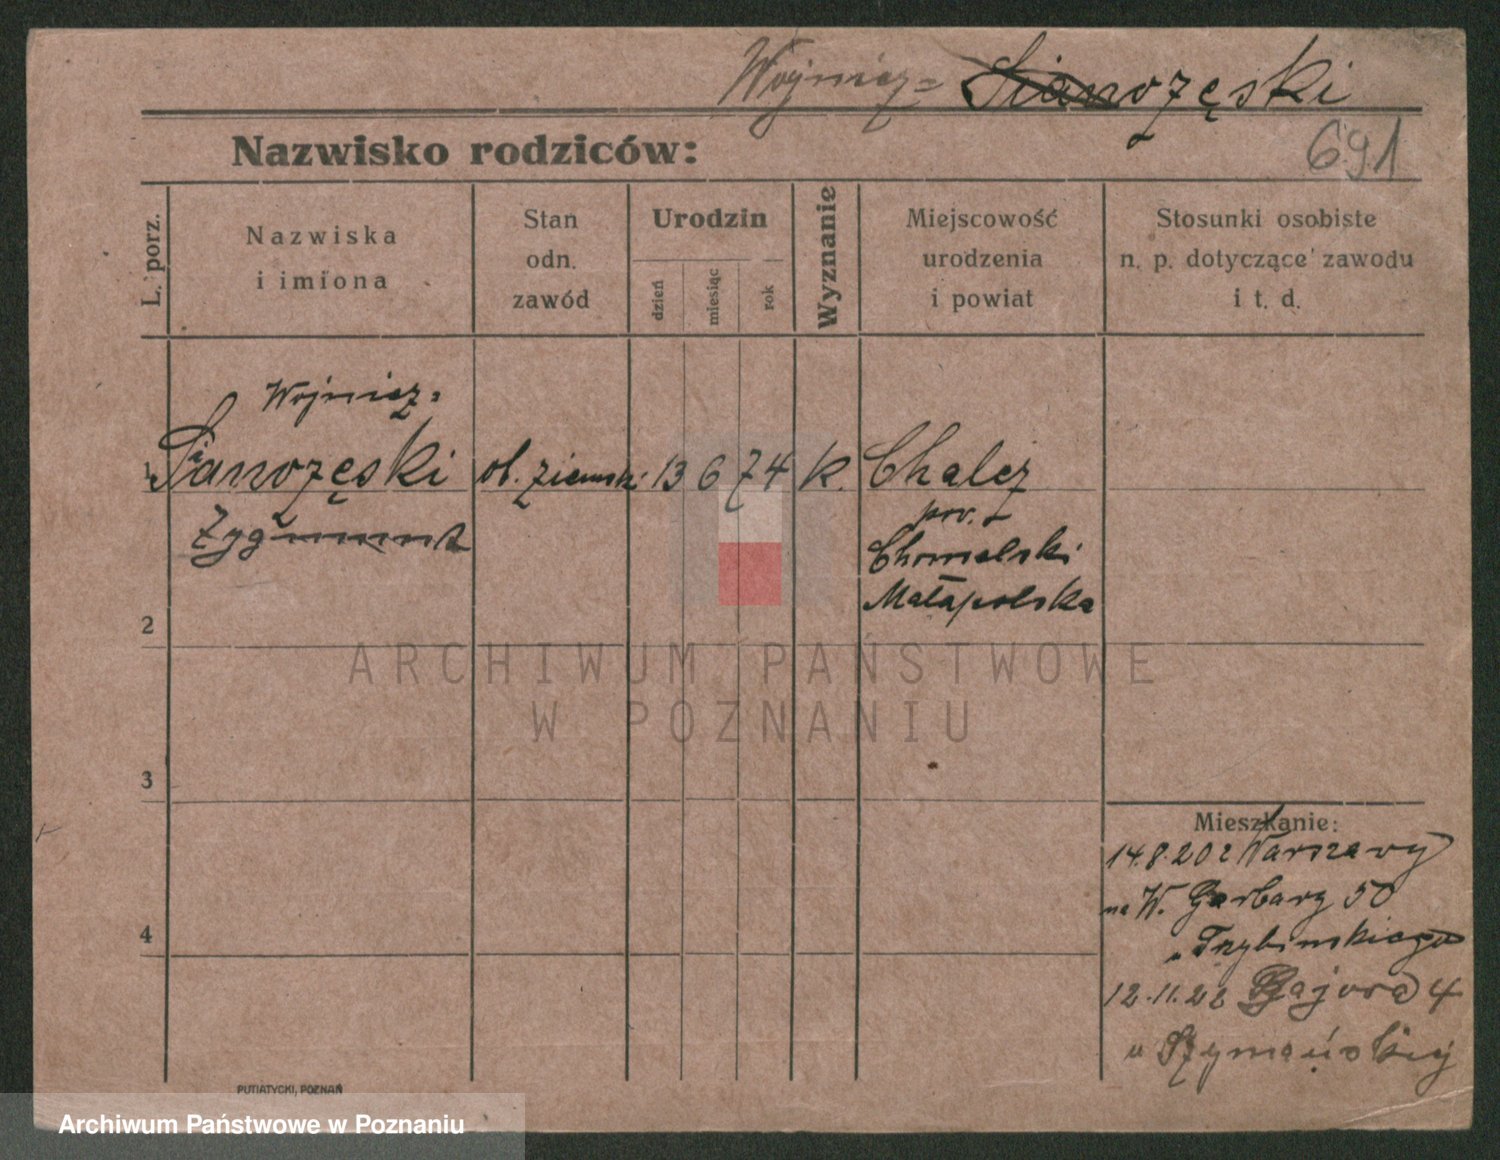 Wojnicz= Sianożęski
691
Nazwisko rodziców:
L. porz.
Nazwiska
i imiona
Stan
odn.
zawód
Urodzin
dzień
miesiąc
rok
Wyznanie
Miejscowość
urodzenia
i powiat
Stosunki osobiste
n. p. dotyczące zawodu
i t. d.
Wojnicz=
1 Sianożęski ob. ziemski 13 6 74 k. Chalez
Zygmunt
pow.
Chomelski
Małapolska
2
3
4
Mieszkanie:
14.8.20 z Warszawy
na W. Garbary 50
u Trybińskiego
12.11.22 4
u Szymańskiej
PUTIATYCKI, POZNAŃ
ARCHIWUM PAŃSTWOWE
W POZNANIU
Archiwum Państwowe w Poznaniu